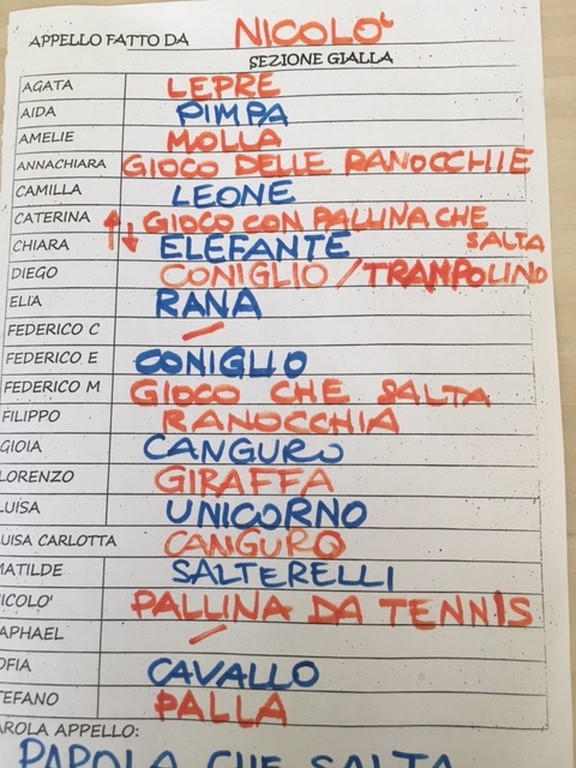 APPELLO FATTO DA NICOLO'
SEZIONE GIALLA
AGATA LEPRE
AIDA PIMPA
AMELIE MOLLA
ANNACHIARA GIOCO DELLE RANOCCHIE
CAMILLA LEONE
CATERINA ↑ GIOCO CON PALLINA CHE
CHIARA ↓ ELEFANTE SALTA
DIEGO CONIGLIO / TRAMPOLINO
ELIA RANA
FEDERICO C /
FEDERICO E CONIGLIO
FEDERICO M GIOCO CHE SALTA
FILIPPO RANOCCHIA
GIOIA CANGURO
LORENZO GIRAFFA
LUISA UNICORNO
UISA CARLOTTA CANGURO
MATILDE SALTERELLI
NICOLO' PALLINA DA TENNIS
APHAEL /
OFIA CAVALLO
TEFANO PALLA
AROLA APPELLO:
PAROLA CHE SALTA